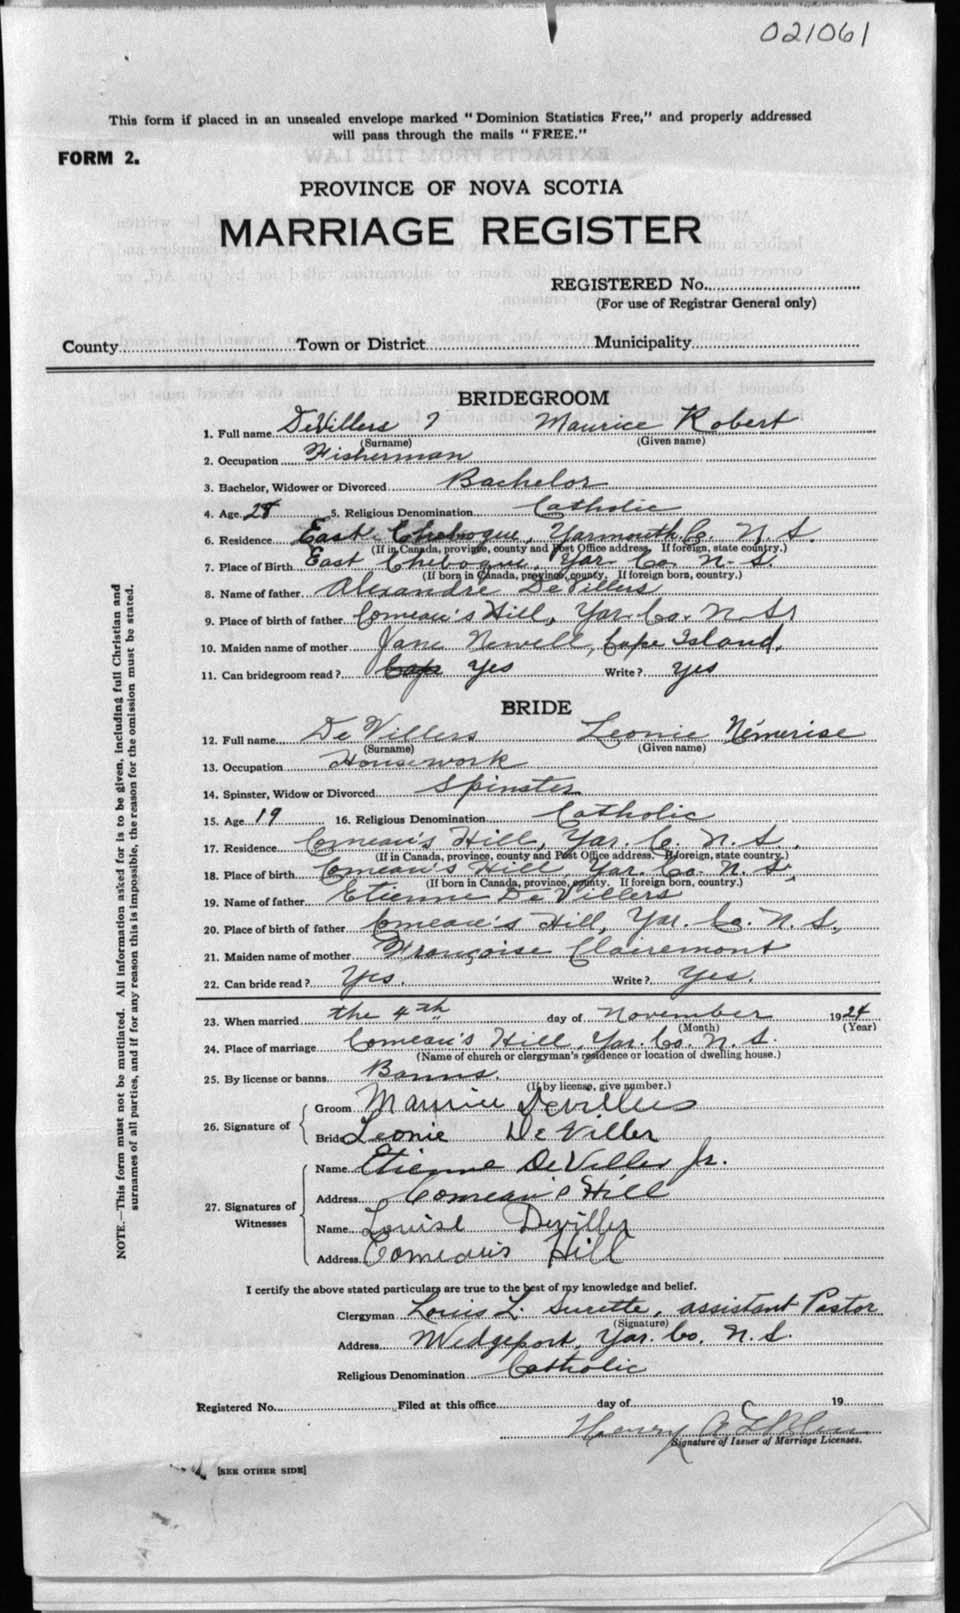 021061
This form if placed in an unsealed envelope marked "Dominion Statistics Free," and properly addressed
will pass through the mails "FREE."
FORM 2.
PROVINCE OF NOVA SCOTIA
MARRIAGE REGISTER
REGISTERED No.
(For use of Registrar General only)
County Town or District Municipality
BRIDEGROOM
1. Full name DeVillers Maurice Robert
(Surname) (Given name)
2. Occupation Fisherman
3. Bachelor, Widower or Divorced Bachelor
4. Age 28 5. Religious Denomination Catholic
6. Residence East Chebogue, Yarmouth Co. N. S.
(If in Canada, province, county and Post Office address. If foreign, state country.)
7. Place of Birth East Chebogue, Yar. Co. N. S.
(If born in Canada, province, county. If foreign born, country.)
8. Name of father Alexandre DeVillers
9. Place of birth of father Comeau's Hill, Yar. Co. N. S.
10. Maiden name of mother Jane Newell, Cape Island.
11. Can bridegroom read? Cape Yes Write? Yes
BRIDE
12. Full name De Villers Leonie Némerise
(Surname) (Given name)
13. Occupation Housework
14. Spinster, Widow or Divorced Spinster
15. Age 19 16. Religious Denomination Catholic
17. Residence Comeau's Hill, Yar. Co. N. S.
(If in Canada, province, county and Post Office address. If foreign, state country.)
18. Place of birth Comeau's Hill, Yar. Co. N. S.
(If born in Canada, province, county. If foreign born, country.)
19. Name of father Etienne De Villers
20. Place of birth of father Comeau's Hill, Yar. Co. N. S.
21. Maiden name of mother Françoise Clairemont
22. Can bride read? Yes. Write? Yes.
23. When married the 4th day of November 1924
(Month) (Year)
24. Place of marriage Comeau's Hill, Yar. Co. N. S.
(Name of church or clergyman's residence or location of dwelling house.)
25. By license or banns Banns.
(If by license, give number.)
26. Signature of
Groom Maurice Devillers
Bride Leonie DeViller
27. Signatures of Witnesses
Name Etienne DeViller Jr.
Address Comeau's Hill
Name Louise Deviller
Address Comeau's Hill
I certify the above stated particulars are true to the best of my knowledge and belief.
Clergyman Louis L. Surette, assistant Pastor
(Signature)
Address Wedgeport, Yar. Co. N. S.
Religious Denomination Catholic
Registered No. Filed at this office day of 19
Henry A
Signature of Issuer of Marriage Licenses.
[SEE OTHER SIDE]
NOTE.—This form must not be mutilated. All information asked for is to be given, including full Christian and
surnames of all parties, and if for any reason this is impossible, the reason for the omission must be stated.